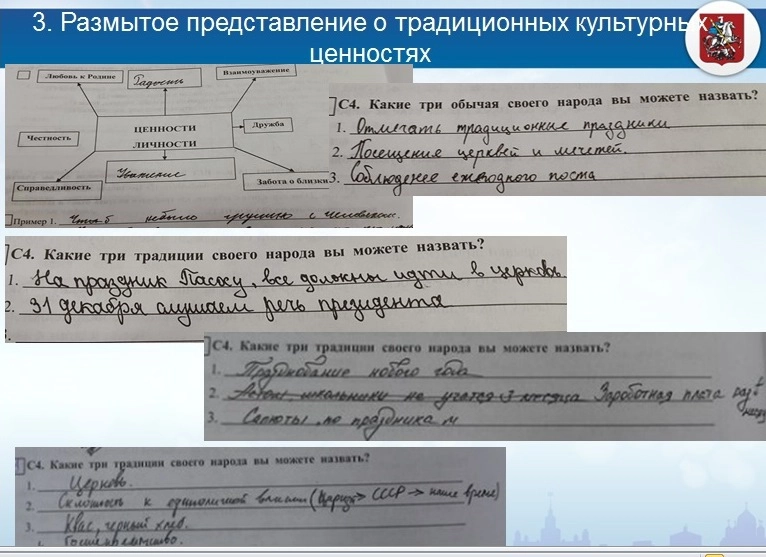 3. Размытое представление о традиционных культурных
ценностях
Любовь к Родине
Радость
Взаимоуважение
Честность
ЦЕННОСТИ
ЛИЧНОСТИ
Дружба
Справедливость
Уважение
Забота о близких
Пример 1. небыло грустно с человеком.
С4. Какие три обычая своего народа вы можете назвать?
1. Отмечать традиционные праздники
2. Посещение церквей и мечетей.
3. Соблюденее ежегодного поста
С4. Какие три традиции своего народа вы можете назвать?
1. На праздник Пасху, все должны идти в церковь
2. 31 декабря слушаем речь президента
С4. Какие три традиции своего народа вы можете назвать?
1. Празднование нового года
2. школьники не учатся 3 месяца Зароботная плата раз в
3. Салюты по праздника м
С4. Какие три традиции своего народа вы можете назвать?
1. Церковь.
2. Склонность к единоличной власти (Царизм → СССР → наше время)
3. Квас, черный хлеб.
Гостеприимство.